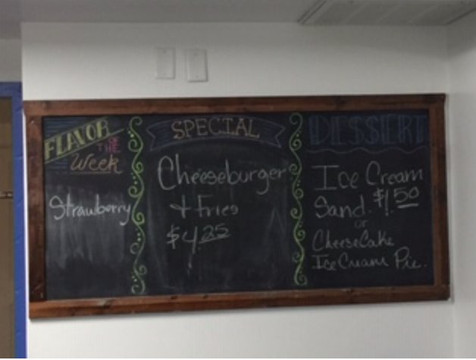 FLAVOR
OF THE
Week
Strawberry
SPECIAL
Cheeseburger
+ Fries
$4.25
DESSERT
Ice Cream
Sand. $1.50
or
CheeseCake
Ice Cream Pie.